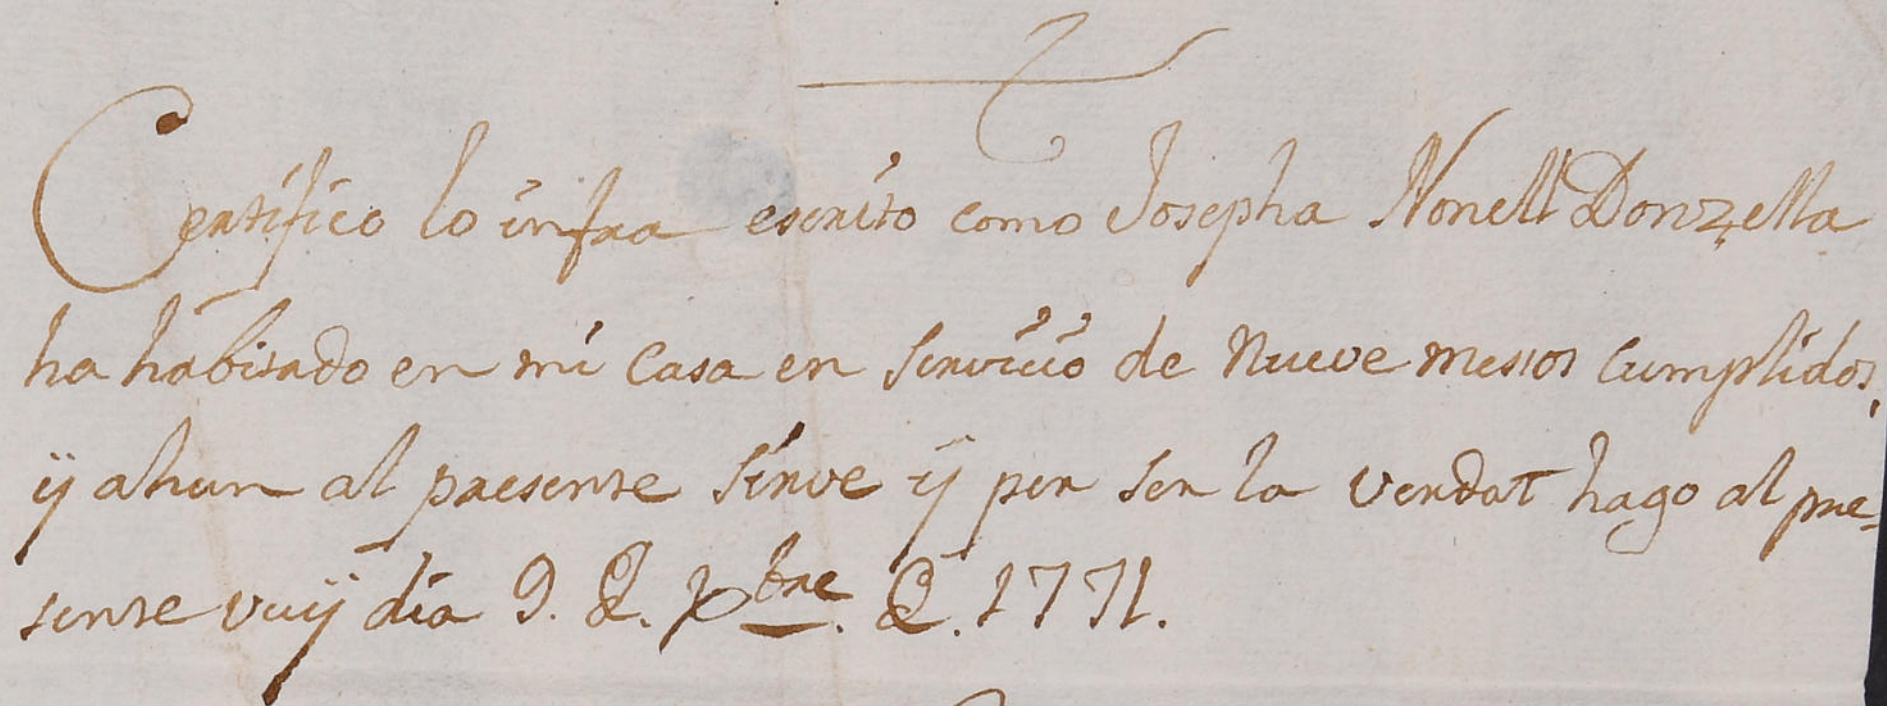 Certifico lo infra escrito como Josepha Nonell Donzella
ha habitado en mi Casa en servicio de Nueve messos cumplidos,
ÿ ahun al presente sirve ÿ per ser la verdat hago al pre-
sente vuÿ dia 9. de. Xbre. de. 1771.